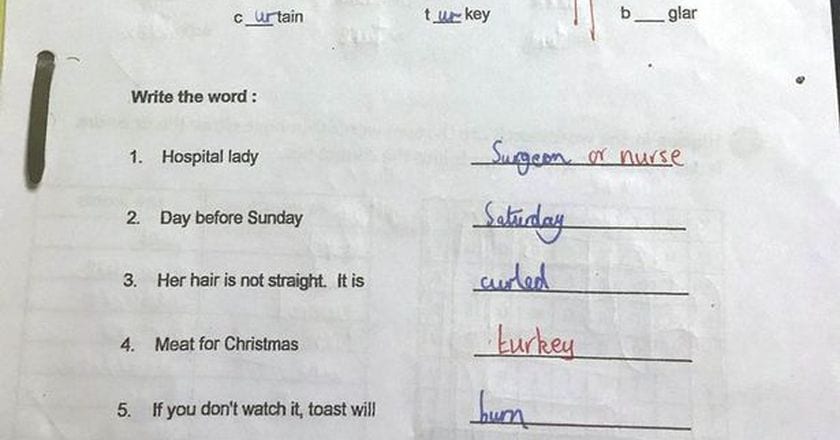 c urtain t ur key b ___ glar
Write the word :
1. Hospital lady Surgeon or nurse
2. Day before Sunday Saturday
3. Her hair is not straight. It is curled
4. Meat for Christmas turkey
5. If you don't watch it, toast will burn